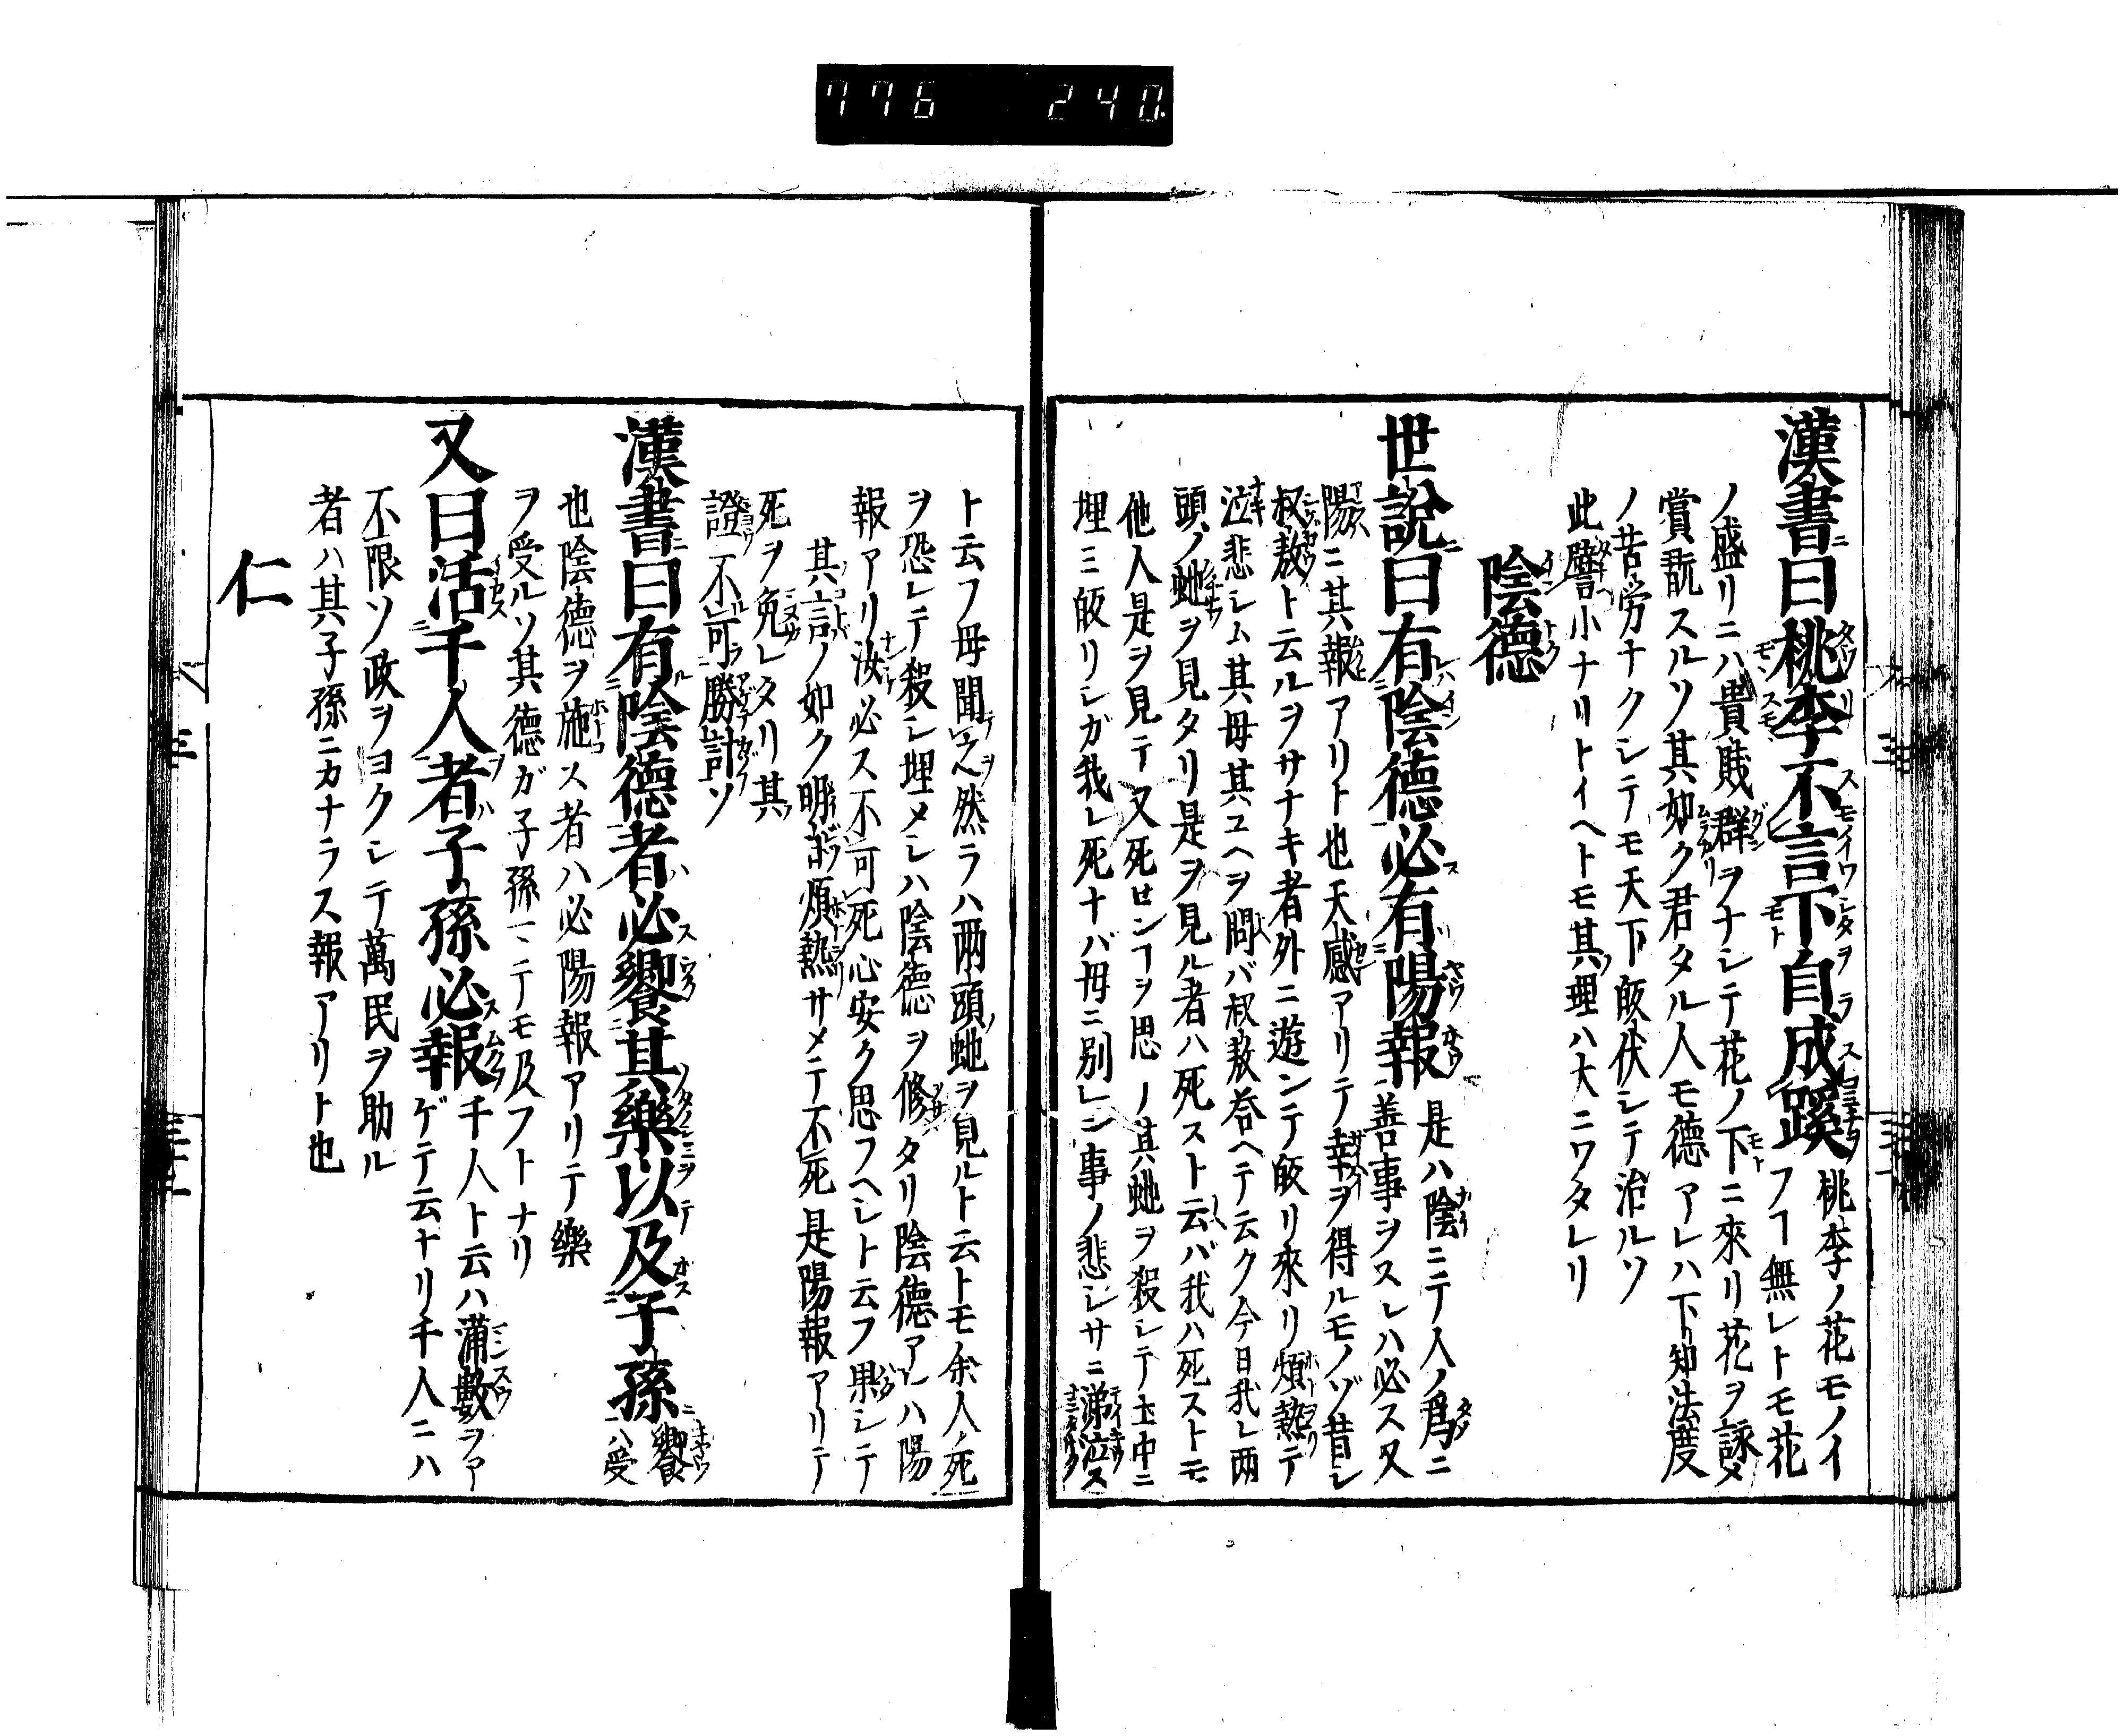 776 240
漢書曰桃李不言下自成蹊 桃李ノ花モノイ
フヿ無レトモ花
ノ盛リニハ貴賎群ヲナシテ花ノ下ニ來リ花ヲ詠メ
賞翫スルソ其如ク君タル人モ德アレハ下ト知法度
ノ苦労ナクシテモ天下皈伏シテ治ルソ
此譬小ナリトイヘトモ其理ハ大ニワタレリ
陰德
世說曰有陰德必有陽報 是ハ陰ニテ人ノ爲ニ
善事ヲスレハ必ス又
陽ニ其報アリト也天感アリテ幸ヲ得ルモノゾ昔シ
叔敖ト云ルヲサナキ者外ニ遊ンテ皈リ來リ煩熱テ
泣悲シム其母其ユヘヲ問バ叔敖荅ヘテ云ク今日我レ両
頭ノ虵ヲ見タリ是ヲ見ル者ハ死スト云バ我ハ死ストモ
他人是ヲ見テ又死センヿヲ思ノ其虵ヲ殺シテ土中ニ
埋ミ皈リシガ我レ死ナバ母ニ別レン事ノ悲シサニ涕泣ス
ト云フ母聞之然ラハ両頭虵ヲ見ルト云トモ余人ノ死
ヲ恐レテ殺シ埋メシハ陰德ヲ修タリ陰德アレハ陽
報アリ汝必ス不可死心安ク思フヘシト云フ果シテ
其言ノ如ク煩熱サメテ不死是陽報アリテ
死ヲ免レタリ其
證不可勝計ソ
漢書曰有陰德者必饗其樂以及子孫 饗
ハ受
也陰德ヲ施ス者ハ必陽報アリテ樂
ヲ受ルソ其德ガ子孫ニテモ及フトナリ
又曰活千人者子孫必報 千人ト云ハ蒲數ヲア
ゲテ云ナリ千人ニハ
不限ソ政ヲヨクシテ萬民ヲ助ル
者ハ其子孫ニカナラス報アリト也
仁